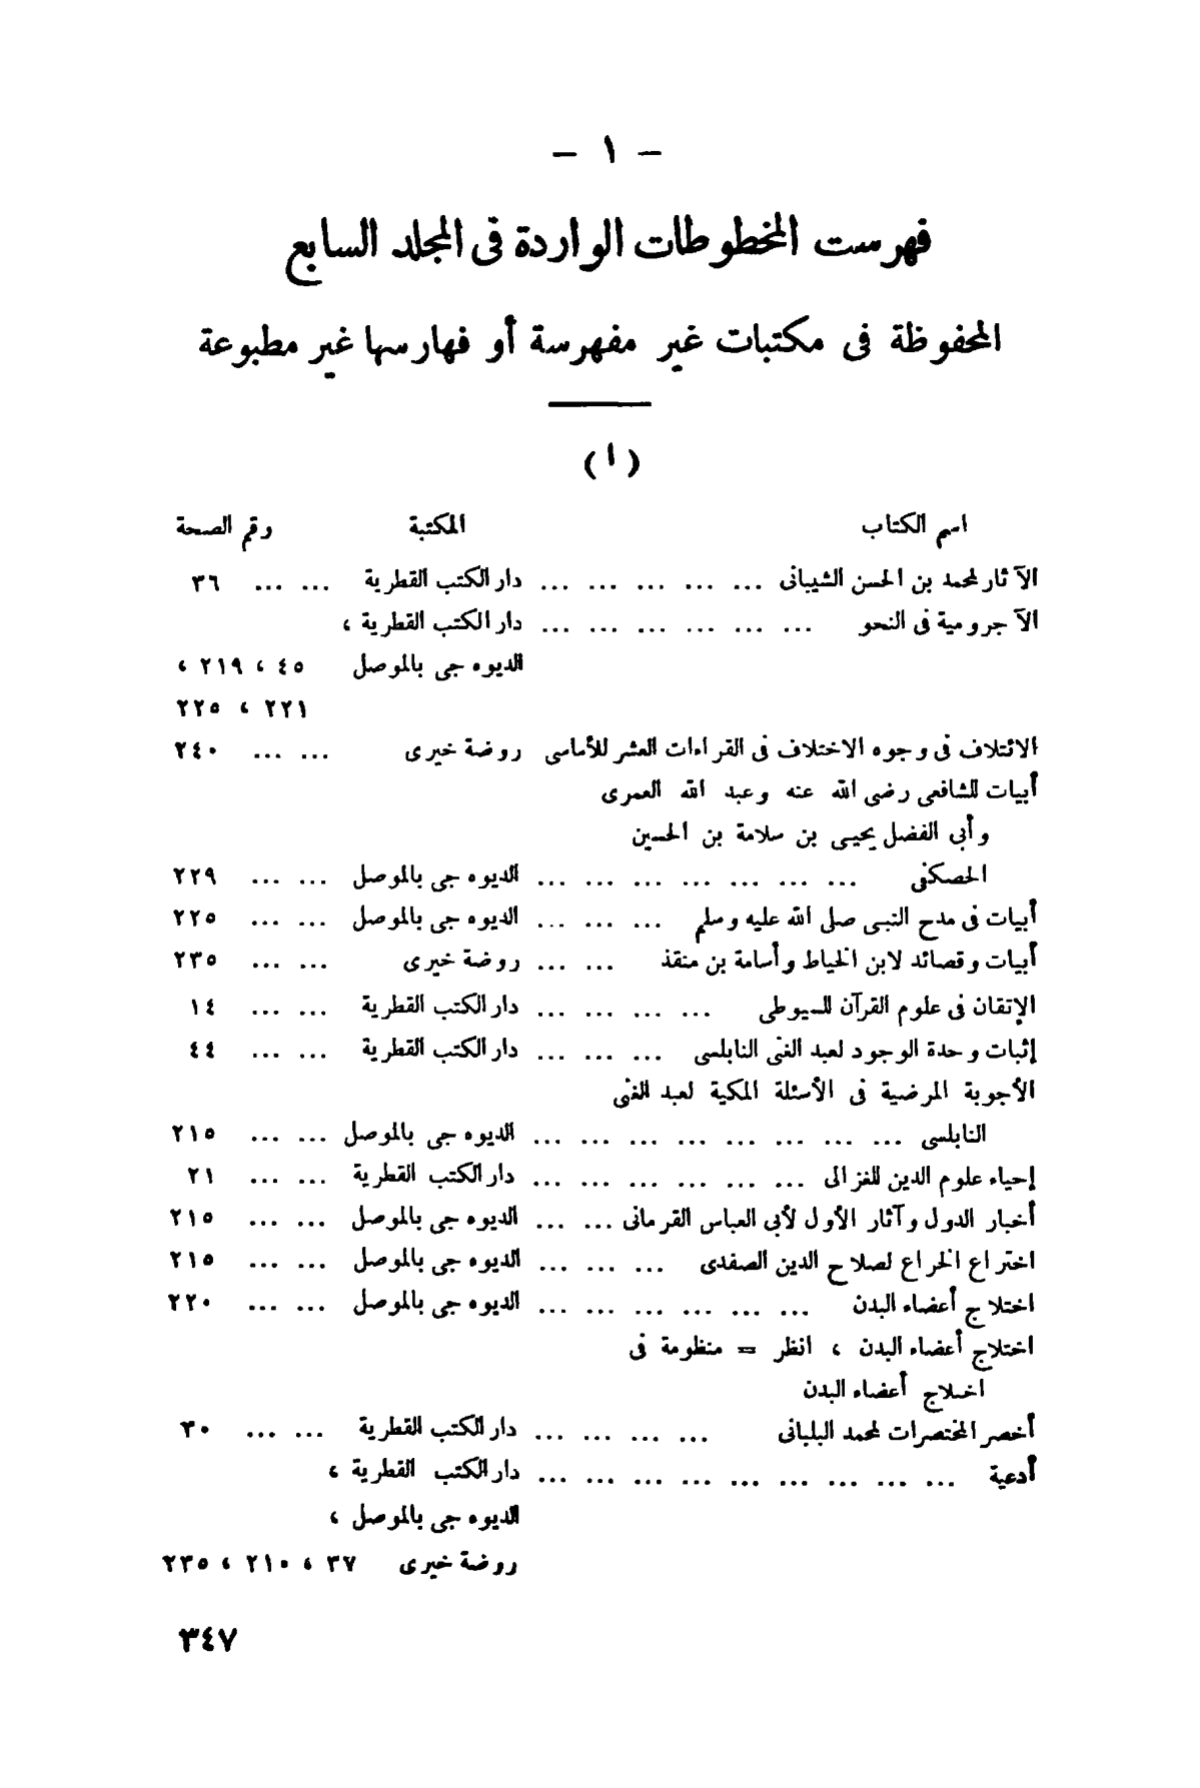 – ١ –
فهرست المخطوطات الواردة فى المجلد السابع
المحفوظة فى مكتبات غير مفهرسة أو فهارسها غير مطبوعة
( ١ )
اسم الكتاب المكتبة ورقم الصحة
الآثار لمحمد بن الحسن الشيبانى ... ... ... ... ... دار الكتب القطرية ... ... ٣٦
الآجرومية فى النحو ... ... ... ... ... ... دار الكتب القطرية ،
الديوه جى بالموصل ٤٥ ، ٢١٩ ،
٢٢١ ، ٢٢٥
الائتلاف فى وجوه الاختلاف فى القراءات العشر للأماسى روضة خيرى ... ... ٢٤٠
أبيات للشافعى رضى الله عنه وعبد الله العمرى
وأبى الفضل يحيى بن سلامة بن الحسين
الحصكفى ... ... ... ... ... ... ... الديوه جى بالموصل ... ... ٢٢٩
أبيات فى مدح النبى صلى الله عليه وسلم ... ... ... الديوه جى بالموصل ... ... ٢٢٥
أبيات وقصائد لابن الخياط وأسامة بن منقذ ... ... روضة خيرى ... ... ٢٣٥
الإتقان فى علوم القرآن للسيوطى ... ... ... ... دار الكتب القطرية ... ... ١٤
إثبات وحدة الوجود لعبد الغنى النابلسى ... ... ... دار الكتب القطرية ... ... ٤٤
الأجوبة المرضية فى الأسئلة المكية لعبد الغنى
النابلسى ... ... ... ... ... ... ... ... الديوه جى بالموصل ... ... ٢١٥
إحياء علوم الدين للغزالى ... ... ... ... ... ... دار الكتب القطرية ... ... ٢١
أخبار الدول وآثار الأول لأبى العباس القرمانى ... ... الديوه جى بالموصل ... ... ٢١٥
اختراع الخراع لصلاح الدين الصفدى ... ... ... الديوه جى بالموصل ... ... ٢١٥
اختلاج أعضاء البدن ... ... ... ... ... ... الديوه جى بالموصل ... ... ٢٢٠
اختلاج أعضاء البدن ، انظر = منظومة فى
اخلاج أعضاء البدن
أخصر المختصرات لمحمد البلبانى ... ... ... ... دار الكتب القطرية ... ... ٣٠
أدعية ... ... ... ... ... ... ... ... ... دار الكتب القطرية ،
الديوه جى بالموصل ،
روضة خيرى ٣٧ ، ٢١٠ ، ٢٣٥
٣٤٧